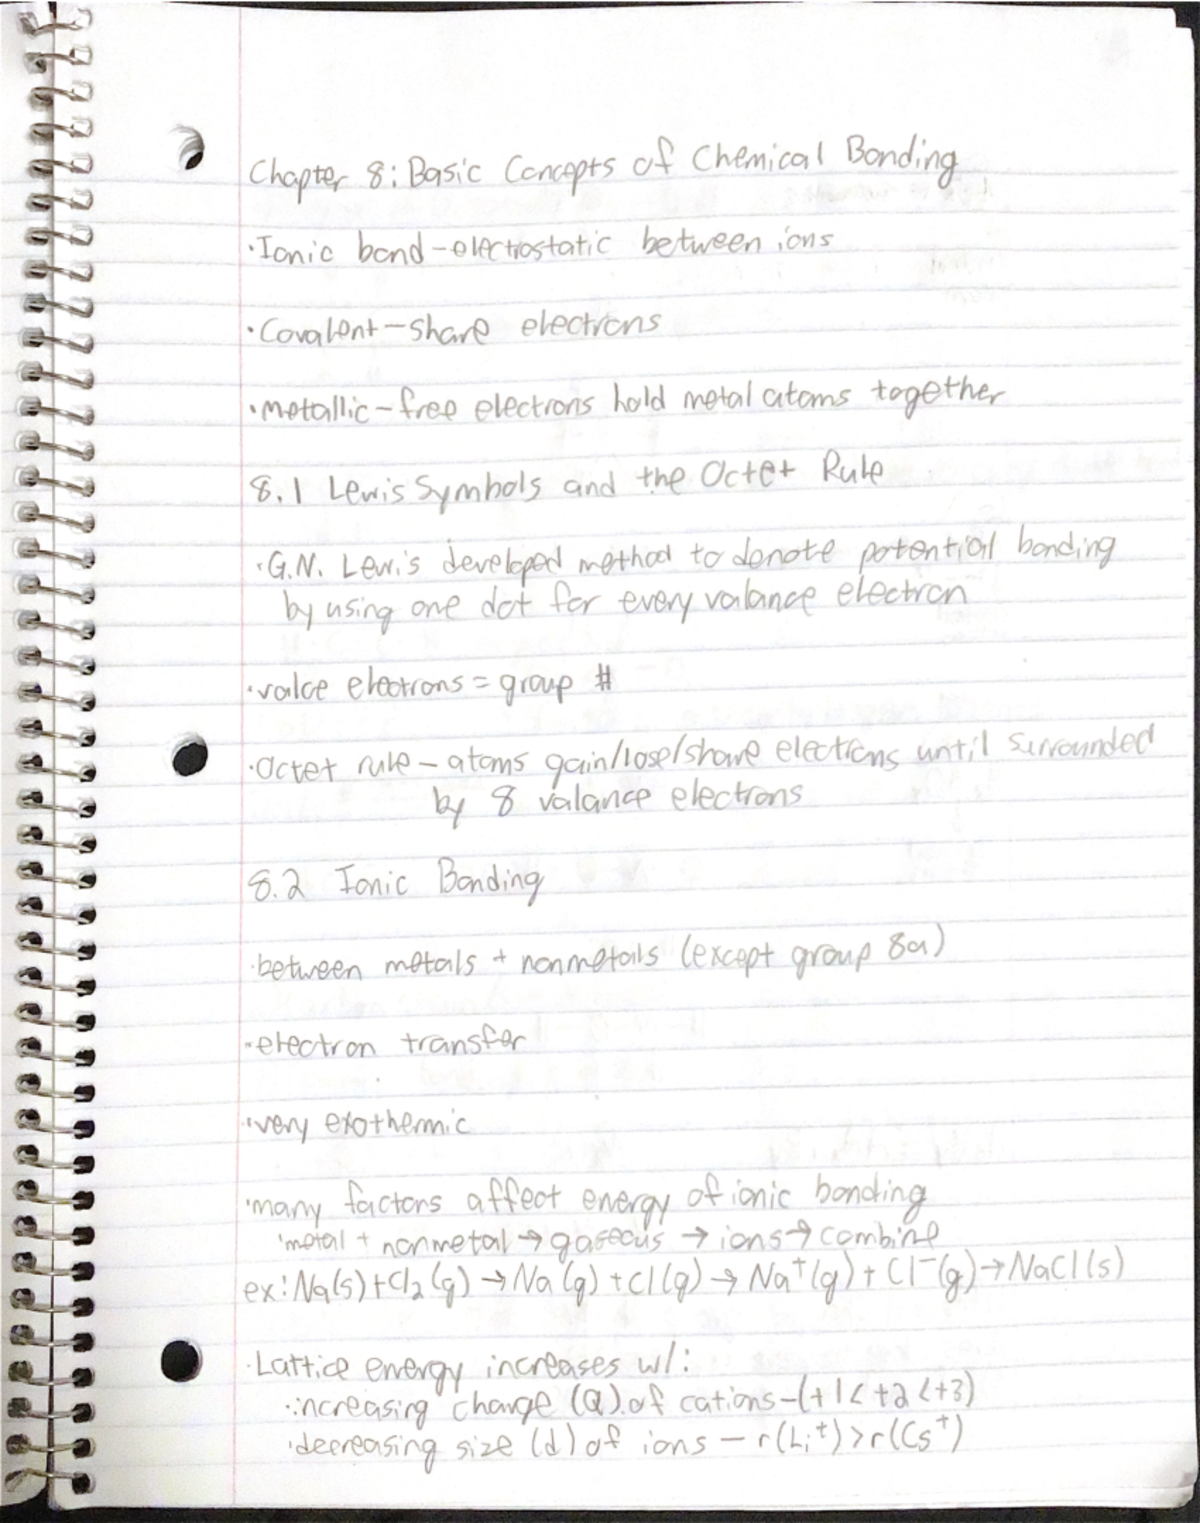 Chapter 8: Basic Concepts of Chemical Bonding
·Ionic bond-electrostatic between ions
·Covalent-share electrons
·metallic-free electrons hold metal atoms together
8.1 Lewis Symbols and the Octet Rule
·G.N. Lewis developed method to denote potential bonding
by using one dot for every valance electron
·valce electrons = group #
·Octet rule - atoms gain/lose/share electrons until surrounded
by 8 valance electrons
8.2 Ionic Bonding
·between metals + nonmetals (except group 8a)
·electron transfer
·very exothermic
·many factors affect energy of ionic bonding
·metal + nonmetal → gaseous → ions → combine
ex: Na(s) + Cl₂(g) → Na(g) + Cl(g) → Na⁺(g) + Cl⁻(g) → NaCl(s)
·Lattice energy increases w/:
·increasing charge (Q) of cations - (+1 < +2 < +3)
·decreasing size (d) of ions - r(Li⁺) > r(Cs⁺)